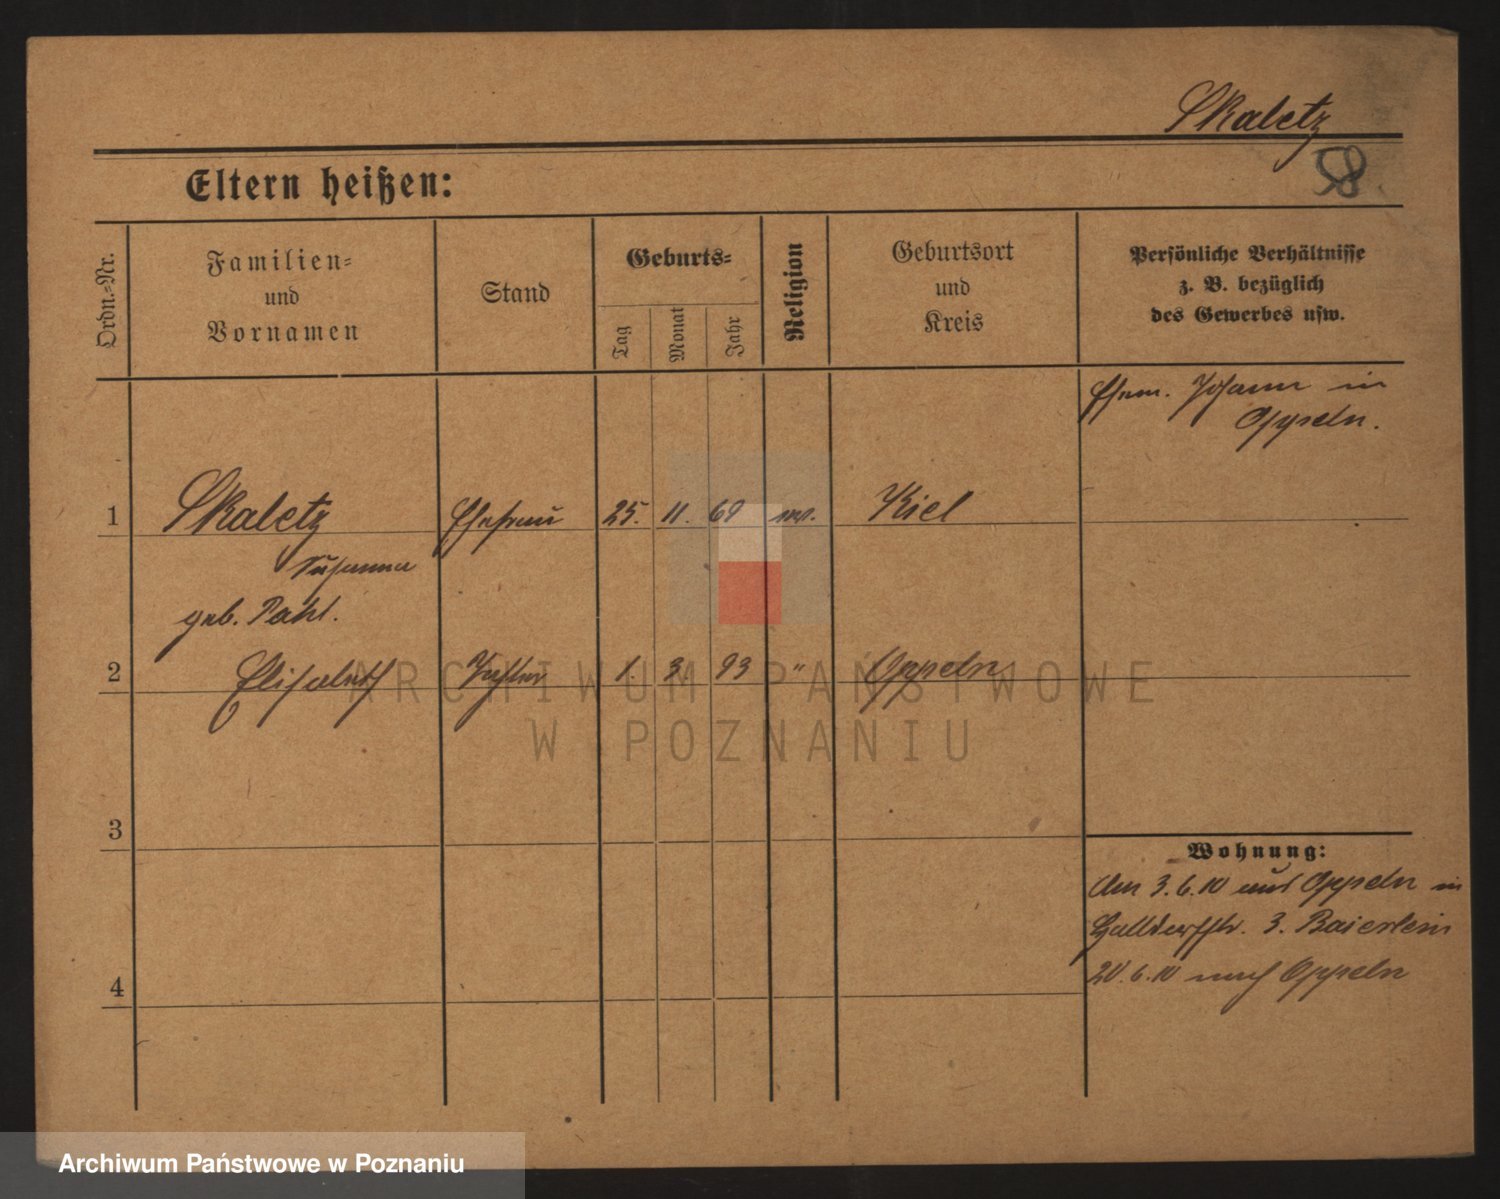 Skaletz
Eltern heißen:
Ordn.-Nr.
Familien-
und
Vornamen
Stand
Geburts-
Tag
Monat
Jahr
Religion
Geburtsort
und
Kreis
Persönliche Verhältnisse
z. B. bezüglich
des Gewerbes usw.
Ehem. Johann in
Oppeln.
1 Skaletz Ehefrau 25. 11. 69 Kiel
Susanna
geb. Pahl.
2 Elisabeth Tochter 1. 3. 93 " Oppeln
3
4
Wohnung:
Am 3.6.10 aus Oppeln in
3. Baierlein
20.6.10 nach Oppeln
ARCHIWUM PAŃSTWOWE
W POZNANIU
Archiwum Państwowe w Poznaniu